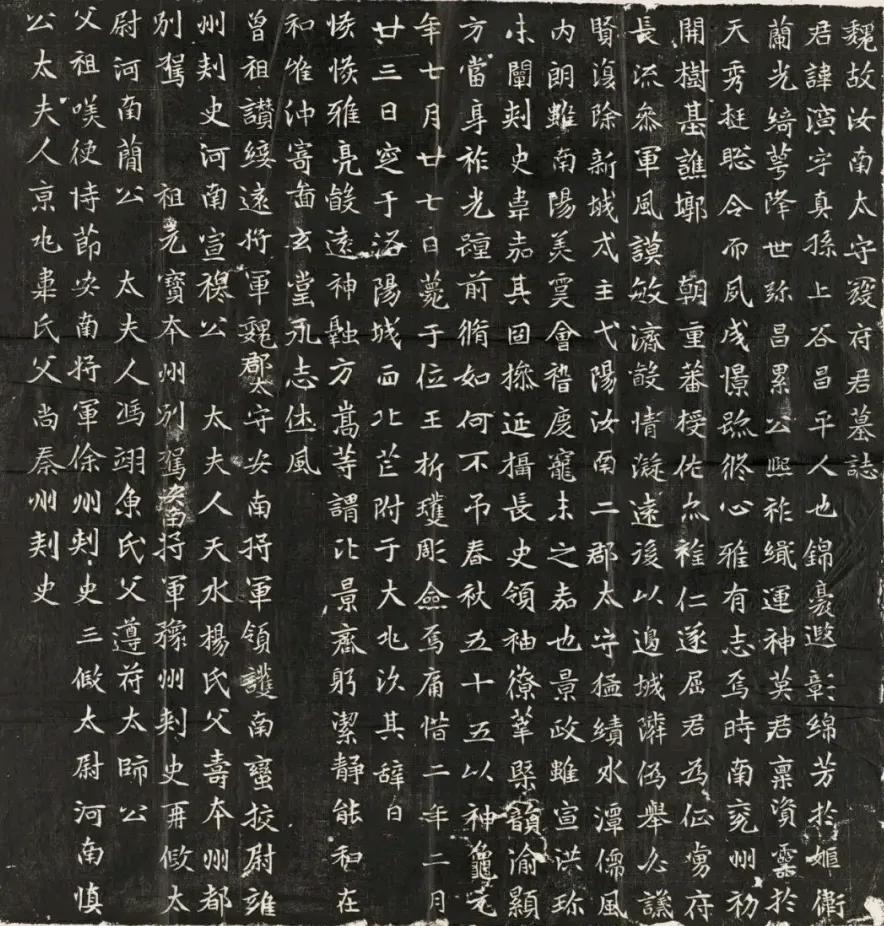 魏故汝南太守寇府君墓誌
君諱演字真孫上谷昌平人也錦裛遐彰綿芳於姬衛
蘭光綺萼降世弥昌累公熙祚纖運神英君稟資靈於
天秀挺聡令而夙成憬踪終心雅有志焉時南兖州初
開樹基譙 朝重蕃授佐雅仁遂屈君為征虜府
長流參軍風謨敏濟毅情凝遠後以邊城隣偽舉必議
賢復除新城戍主弋陽汝南二郡太守猛績水潭儒風
內朗雖南陽美會稽慶寵未之嘉也景政雖宣洪珎
未闡刺史韋嘉其固操延攝長史領袖僚菫槩韻渝顯
方當身祚光踵前脩如何不弔春秋五十五以神龜元
年七月廿七日薨于位玉析瓊彫僉焉痛惜二年二月
廿三日窆于洛陽城西北芒附于大兆次其辭曰
悠悠雅亮毅遠神融方嵩等謂比景齋躬潔靜能和在
和唯沖寄啚玄堂永志休風
曾祖讚綏遠將軍魏郡太守安南將軍領護南蠻挍尉雍
州刺史河南宣穆公 太夫人天水楊氏父壽本州都
別駕 祖元寶本州別駕安南將軍豫州刺史再假太
尉河南蕳公 太夫人馮翊魚氏父遵苻太師公
父祖嘆使持節安南將軍徐州刺史三假太尉河南慎
公太夫人京兆韋氏父尚秦州刺史